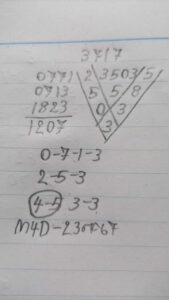 3717
0771 2 3503 5
0713 5 5 8
1823 0 3
1207 3
0-7-1-3
2-5-3
4-5 3-3